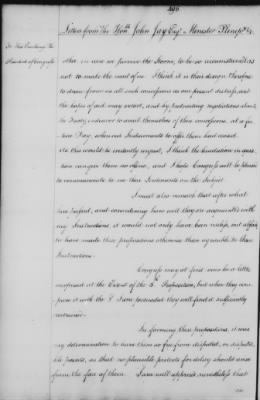 496
Letters from The Honble John Jay Esqr Minister Plenipo: &c
To His Excellency The
President of Congress
this is now or sooner the Favor, to be so circumstanced as
not to make the want of me. I think it is their design therefore
to draw from us all such concessions as our present distress and
the hopes of aid may extort, and by protracting negotiations about
the Treaty, endeavor to avail themselves of these concessions, at a fu-
ture Day, when our Inducements to offer them had ceased.
As this would be evidently unjust, I think the limitation in ques-
tion can give them no offence, and I hope Congress will be pleased
to communicate to me their Sentiments on the Subject.
I must also remark that after what
has passed, and considering how well they are acquainted with
my Instructions, it would not only have been unwise, but absurd
to have made these propositions otherwise than agreeable to those
Instructions.
Congress may at first view be a little
surprized at the Extent of the 6th Proposition, but when they com-
pare it with the 8 I am persuaded they will find it sufficiently
restrained.
In forming these propositions, it was
my determination to leave them as free from disputed, or disputa-
ble points, as that no plausible pretexts for delay should arise
from the face of them. I am well apprized nevertheless that